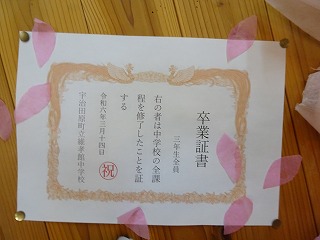 卒業証書
三年生全員
右の者は中学校の全課
程を修了したことを証
する
令和六年三月十四日
宇治田原町立維孝館中学校
祝